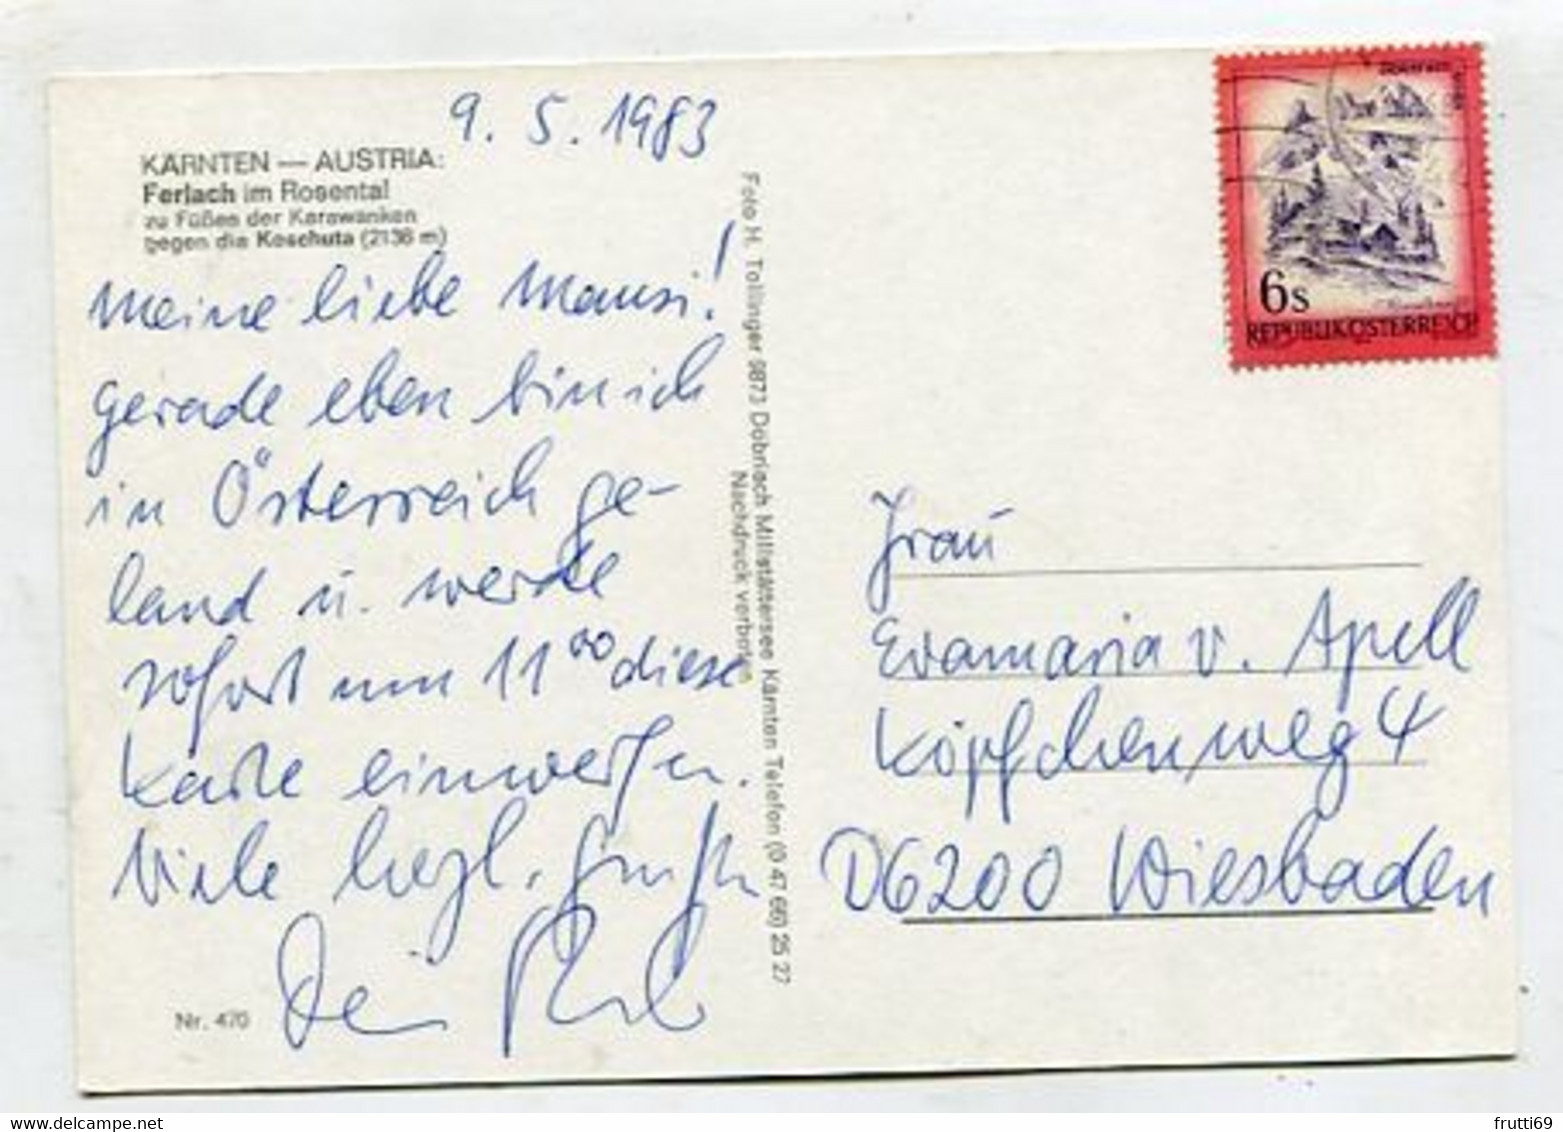 9. 5. 1983
KÄRNTEN — AUSTRIA:
Ferlach im Rosental
zu Füßen der Karawanken
gegen die Koschuta (2136 m)
Meine liebe Mausi!
gerade eben bin ich
in Österreich ge-
land u. werde
sofort um 11⁰⁰ diese
Karte einwerfen.
Viele herzl. Grüße
Dein
Nr. 470
Foto H. Tollinger 9873 Döbriach Millstättersee Kärnten Telefon (0 47 66) 25 27
Nachdruck verboten
6s
REPUBLIK ÖSTERREICH
Frau
Evamaria v. Apell
Köpfchenweg 4
D6200 Wiesbaden
frutti69